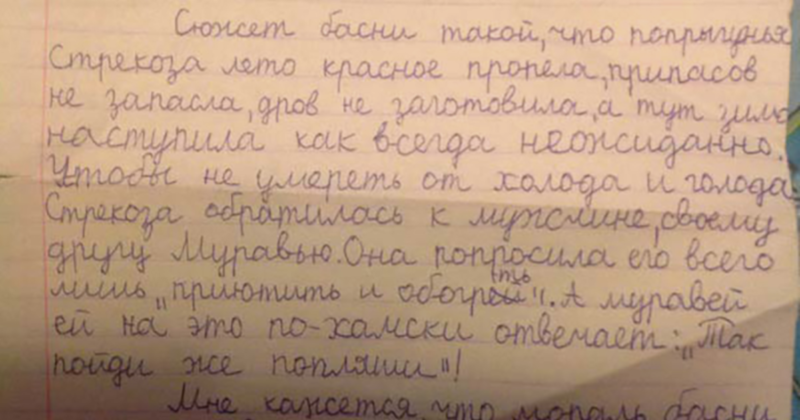 Сюжет басни такой, что попрыгунья
Стрекоза лето красное пропела, припасов
не запасла, дров не заготовила, а тут зима
наступила как всегда неожиданно.
Чтобы не умереть от холода и голода,
Стрекоза обратилась к мужчине, своему
другу Муравью. Она попросила его всего
лишь „приютить и обогреть". А муравей
ей на это по-хамски отвечает: „Так
пойди же попляши"!
Мне кажется, что мораль басни